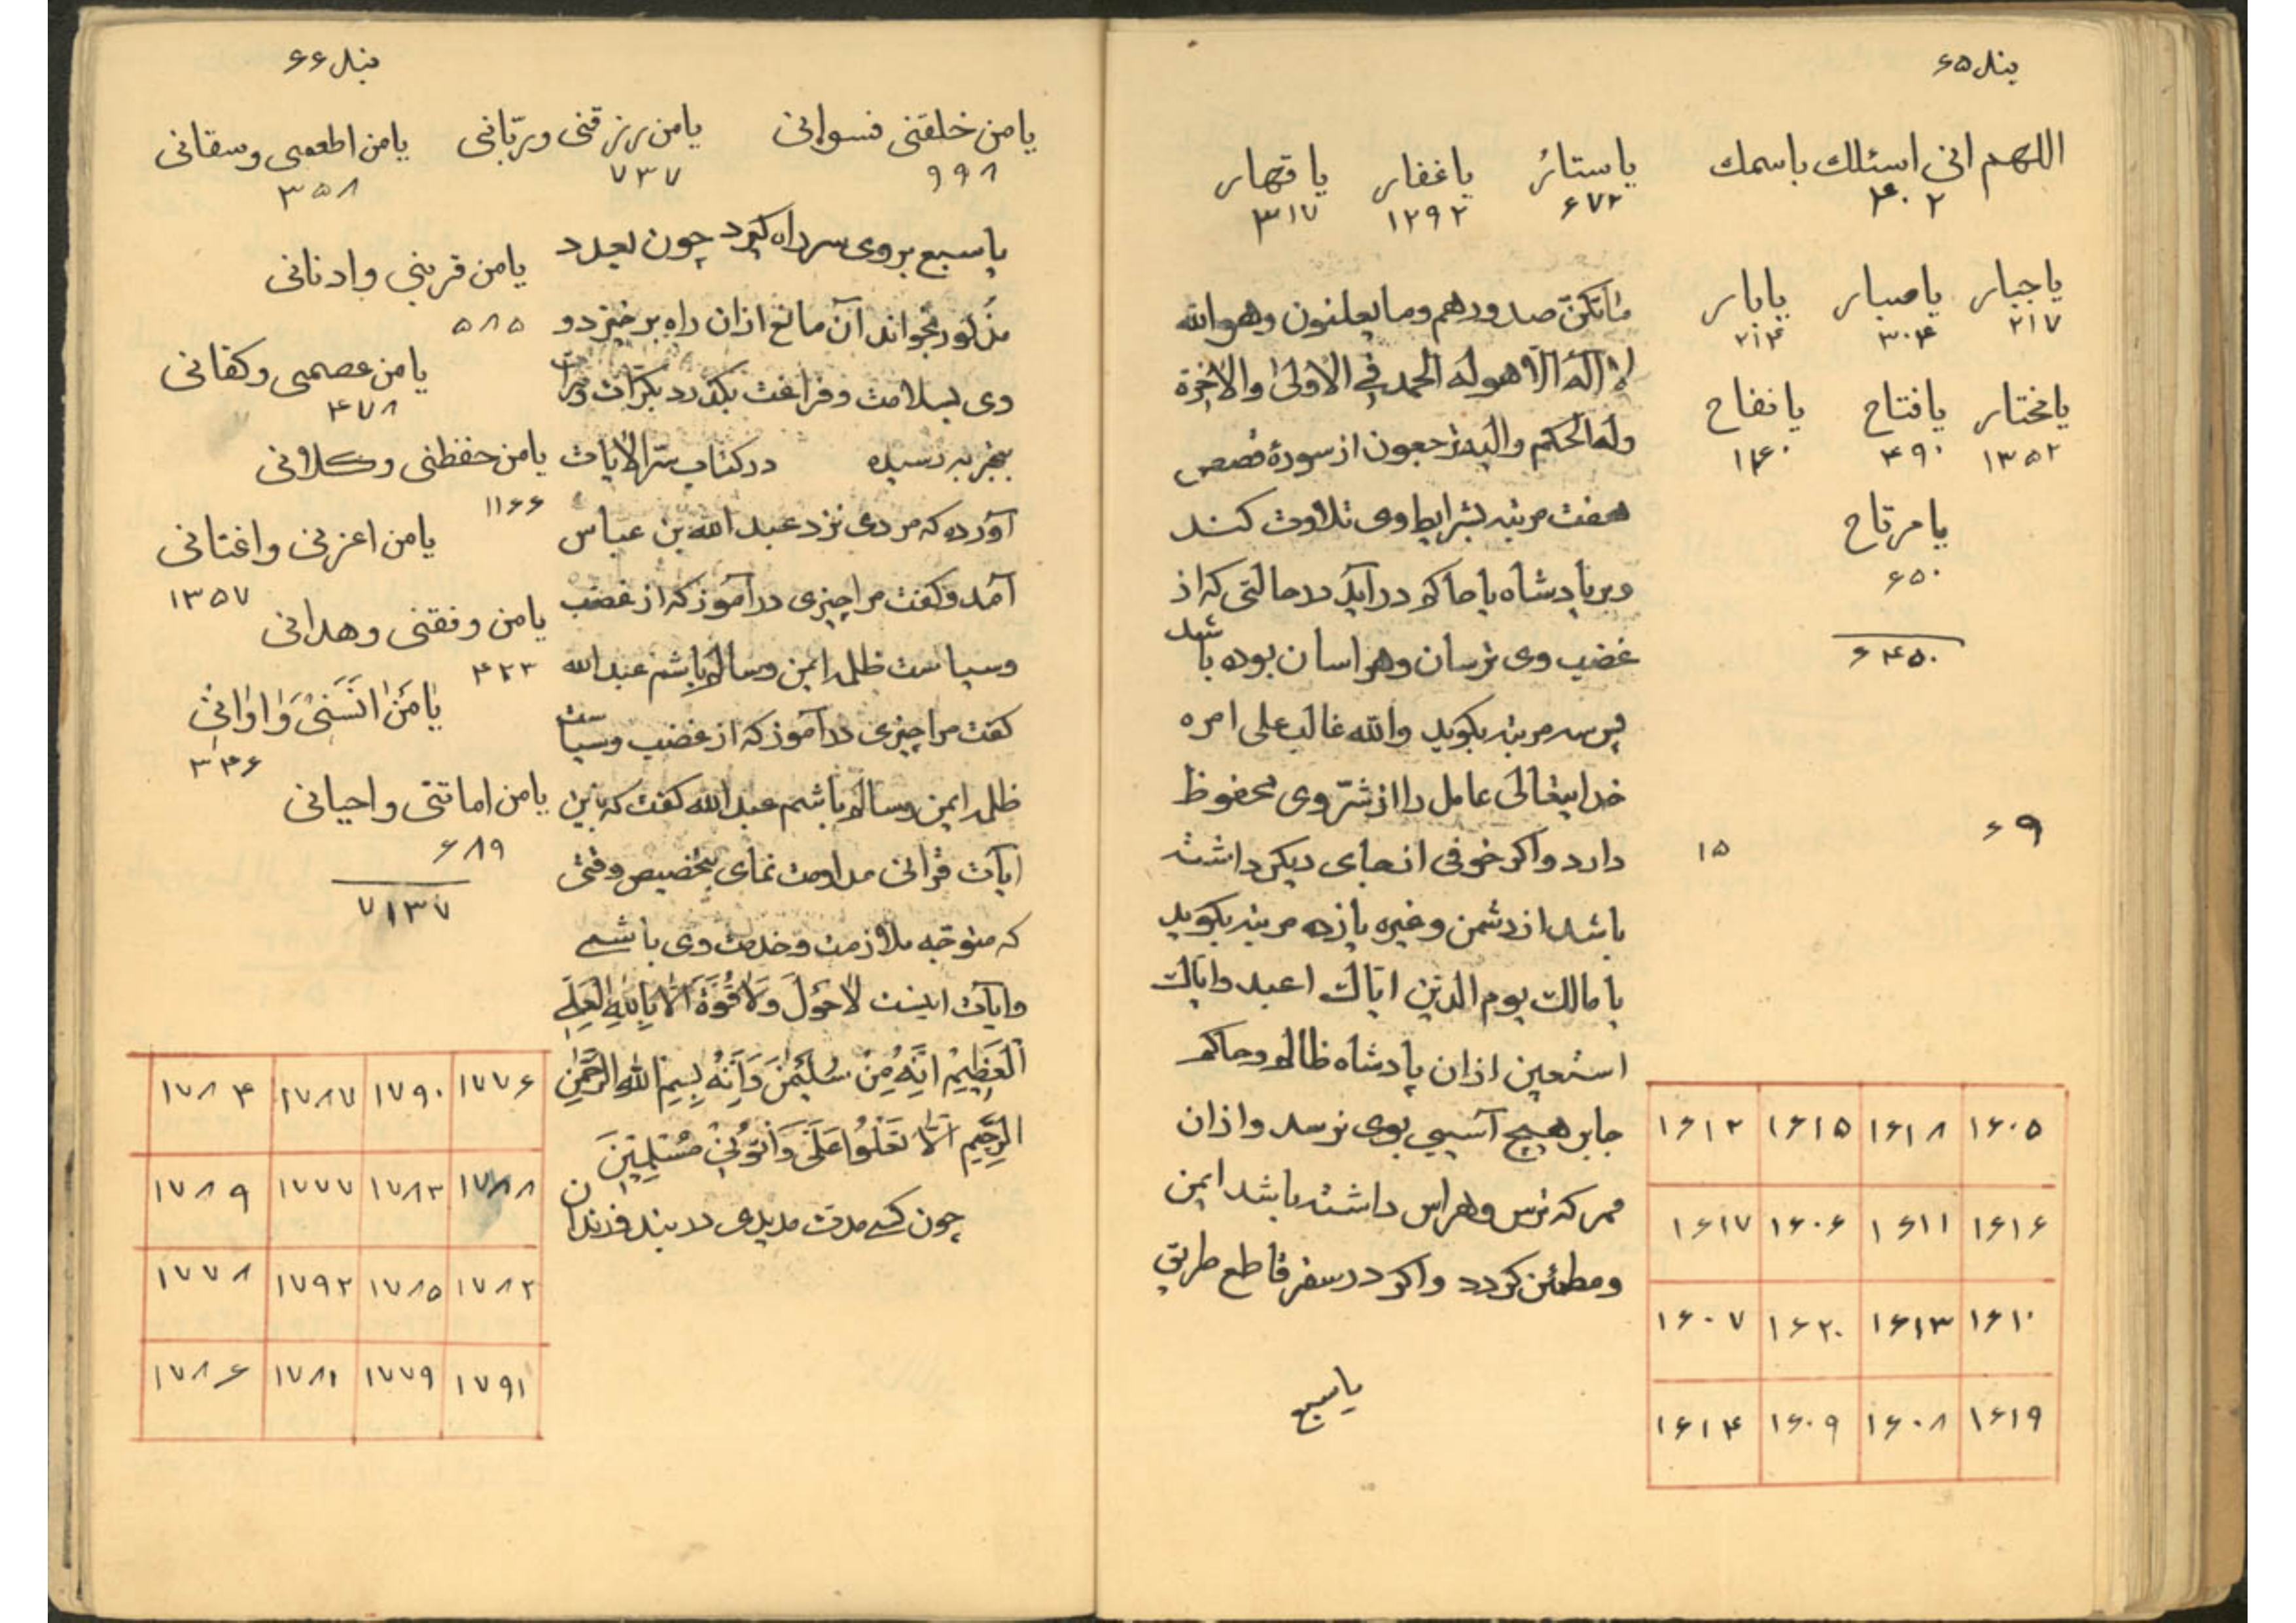 بند ۶۵
اللهم انی اسئلك باسمك یا ستار یا غفار یا قهار
۴۰۲ ۶۷۲ ۱۲۹۲ ۳۱۷
یا جبار یا صبار یا بار
۲۱۷ ۳۰۴ ۲۱۴
یا مختار یا فتاح یا نفاح
۱۳۵۲ ۴۹۰ ۱۴۰
یا مرتاح
۶۵۰
۶۴۵۰
ما تکن صدورهم وما یعلنون وهو الله
لا اله الا هو له الحمد فی الاولی والاخرة
وله الحکم والیه ترجعون از سورهٔ قصص
هفت مرتبه بشرایط وی تلاوت کند
وبر پادشاه یا حاکم درآید در حالتی که از
غضب وی ترسان وهراسان بوده باشد
پس سه مرتبه بکوید والله غالب علی امره
خدایتعالی عامل را از شرّ وی محفوظ
دارد واکر خوفی از جای دیکر داشته
باشد از دشمن وغیره یازده مرتبه بکوید
یا مالك یوم الدین ایاك اعبد وایاك
استعین از ان پادشاه ظالم وحاکم
جابر هیچ آسیبی بوی نرسد واز ان
ممر که ترس وهراس داشته باشد ایمن
ومطمئن کردد واکر در سفر قاطع طریق
یا سبع
۶۹ ۱۵
۱۶۰۵ ۱۶۱۸ ۱۶۱۵ ۱۶۱۲
۱۶۱۶ ۱۶۱۱ ۱۶۰۶ ۱۶۱۷
۱۶۱۰ ۱۶۱۳ ۱۶۲۰ ۱۶۰۷
۱۶۱۹ ۱۶۰۸ ۱۶۰۹ ۱۶۱۴
بند ۶۶
یا من خلقنی فسوانی یا من رزقنی وربّانی یا من اطعمنی وسقانی
۹۹۸ ۷۳۷ ۳۵۸
یا من قربنی وادنانی
۵۸۵
یا من عصمنی وکفانی
۴۷۸
یا من حفظنی وکلانی
۱۱۶۶
یا من اعزنی واغنانی
۱۳۵۷
یا من وفقنی وهدانی
۴۲۳
یا من انسنی واوانی
۳۴۶
یا من اماتنی واحیانی
۶۸۹
۷۱۳۷
یا سبع بر وی سر راه کیرد چون بعدد
مذکور بخواند آن مانع از ان راه برخیزد و
وی بسلامت وفراغت بکذرد بکرات ومرات
بتجربه رسیده در کتاب سرّ الایات
آورده که مردی نزد عبد الله بن عباس
آمد وکفت مرا چیزی درآموز که از غضب
وسیاست ظلمه ایمن وسالم باشم عبد الله
کفت مرا چیزی درآموز که از غضب وسیاست
ظلمه ایمن وسالم باشم عبد الله کفت که باین
ایات قرانی مداومت نمای بتخصیص وقتی
که متوجه ملازمت وخدمت وی باشی
وایات اینست لَا حَوْلَ وَلَا قُوَّةَ اِلَّا بِاللهِ الْعَلِیِّ
الْعَظِیمِ اِنَّهُ مِنْ سُلَیْمٰنَ وَاِنَّهُ بِسْمِ اللهِ الرَّحْمٰنِ
الرَّحِیمِ اَلَّا تَعْلُوا عَلَیَّ وَأْتُونِی مُسْلِمِینَ
چون کسی مدت مدیدی در بند فرزندان
۱۷۷۶ ۱۷۹۰ ۱۷۸۷ ۱۷۸۴
۱۷۸۸ ۱۷۸۳ ۱۷۷۷ ۱۷۸۹
۱۷۸۲ ۱۷۸۵ ۱۷۹۲ ۱۷۷۸
۱۷۹۱ ۱۷۷۹ ۱۷۸۱ ۱۷۸۶